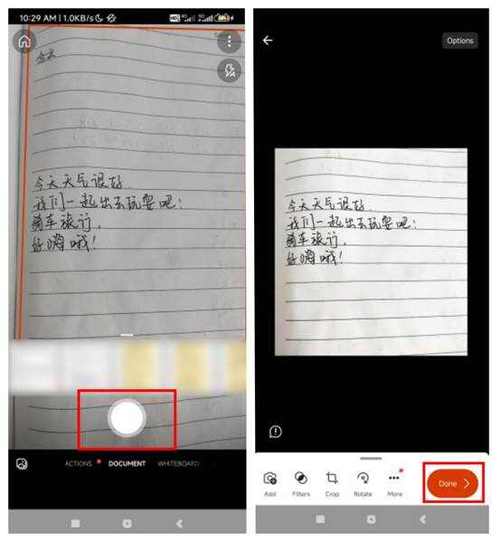 10:29 AM | 1.0KB/s
今天
今天天气很好
我们一起出去玩耍吧:
骑车旅行,
好嗨哦!
ACTIONS DOCUMENT WHITEBOARD
Options
今天天气很好
我们一起出去玩耍吧:
骑车旅行,
好嗨哦!
Add Filters Crop Rotate More Done